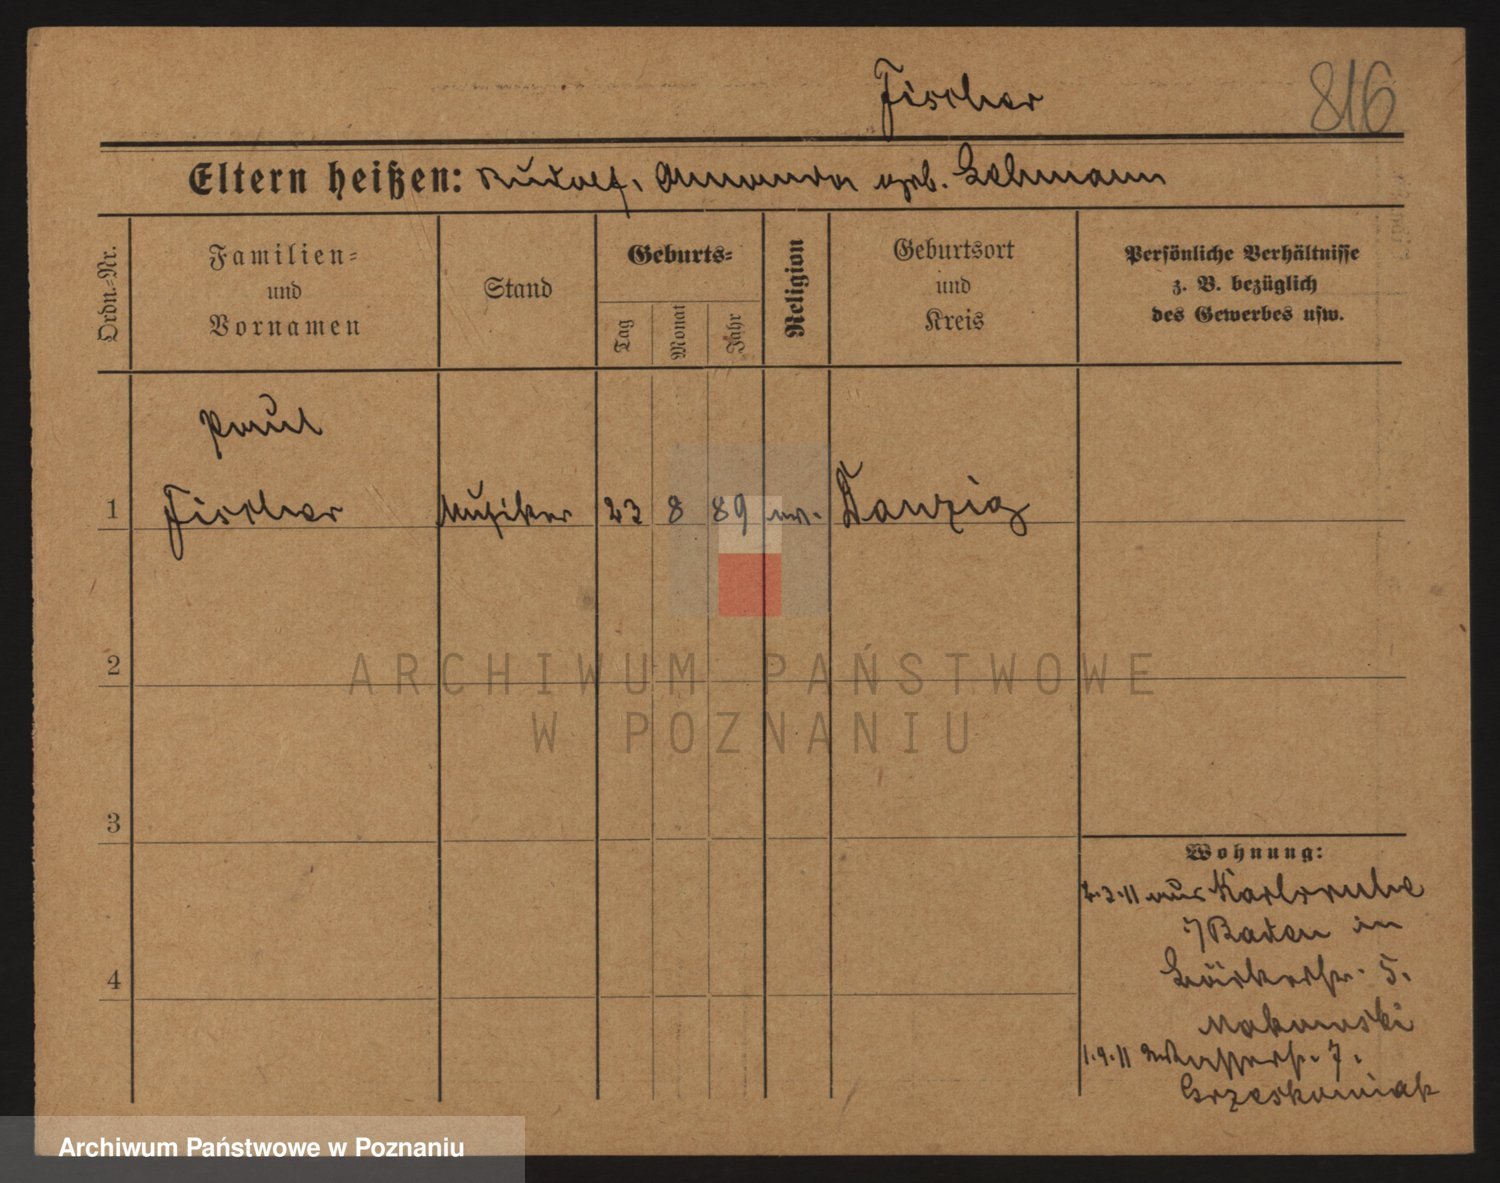 Fischer 816
Eltern heißen: Rudolf, Amanda geb. Lehmann
Ordn.-Nr.
Familien-
und
Vornamen
Stand
Geburts-
Tag
Monat
Jahr
Religion
Geburtsort
und
Kreis
Persönliche Verhältnisse
z. B. bezüglich
des Gewerbes usw.
Paul
1 Fischer Musiker 23 8 89 ev. Danzig
2
ARCHIWUM PAŃSTWOWE
W POZNANIU
3
4
Wohnung:
2.3.11 aus Karlsruhe
i/Baden in
Bäckerstr. 5.
Makowski
1.9.11 7.
Grzeskowiak
Archiwum Państwowe w Poznaniu